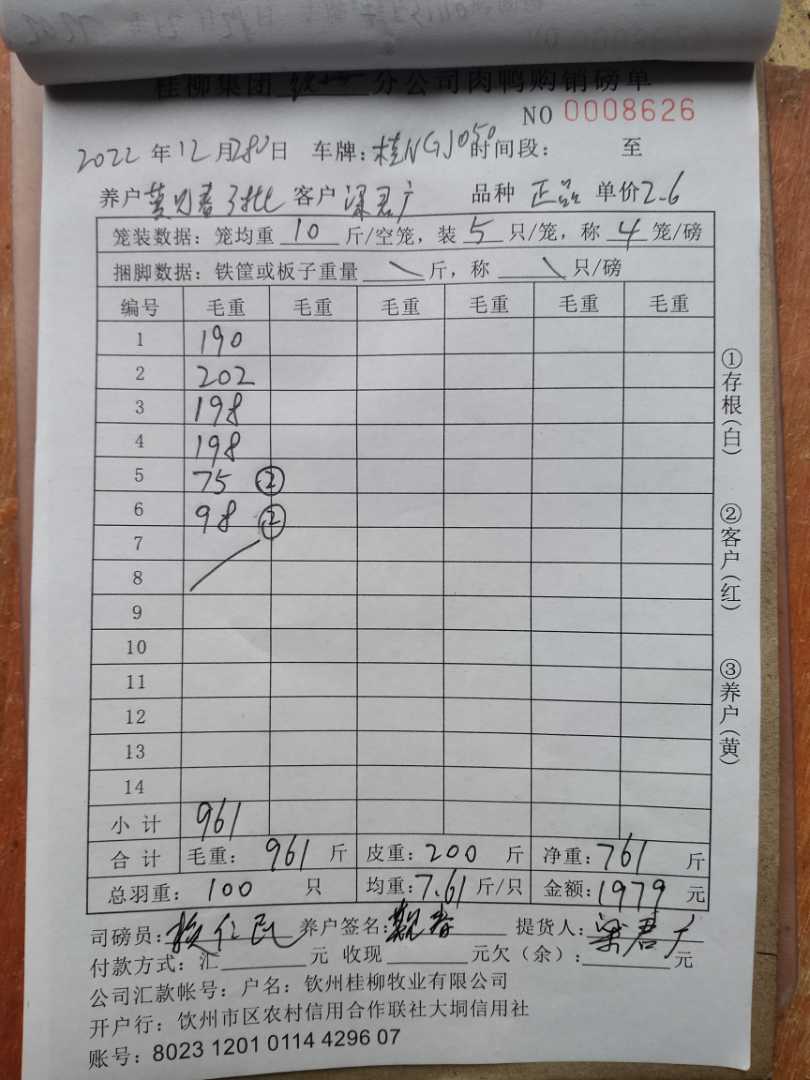 桂柳集团 分公司肉鸭购销磅单
NO 0008626
2022 年 12 月 28 日 车牌: 桂NGJ050 时间段: 至
养户 黄观春3批 客户 梁君广 品种 正品 单价 2.6
笼装数据: 笼均重 10 斤/空笼, 装 5 只/笼, 称 4 笼/磅
捆脚数据: 铁筐或板子重量 \ 斤, 称 \ 只/磅
编号 毛重 毛重 毛重 毛重 毛重 毛重
1 190
2 202
3 198
4 198
5 75 ②
6 98 ②
7
8
9
10
11
12
13
14
小计 961
合计 毛重: 961 斤 皮重: 200 斤 净重: 761 斤
总羽重: 100 只 均重: 7.61 斤/只 金额: 1979 元
司磅员: 养户签名: 观春 提货人: 梁君广
付款方式: 汇 元 收现 元欠(余): 元
公司汇款帐号: 户名: 钦州桂柳牧业有限公司
开户行: 钦州市区农村信用合作联社大垌信用社
账号: 8023 1201 0114 4296 07
①存根(白)
②客户(红)
③养户(黄)